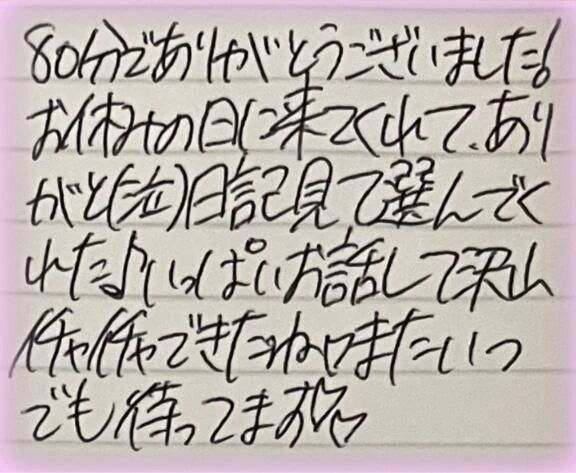 80分でありがとうございました!
お休みの日に来てくれて、あり
がと(泣)日記見て選んでく
れた♪いっぱいお話して沢山
イチャイチャできたね♡またいつ
でも待ってます♡♡